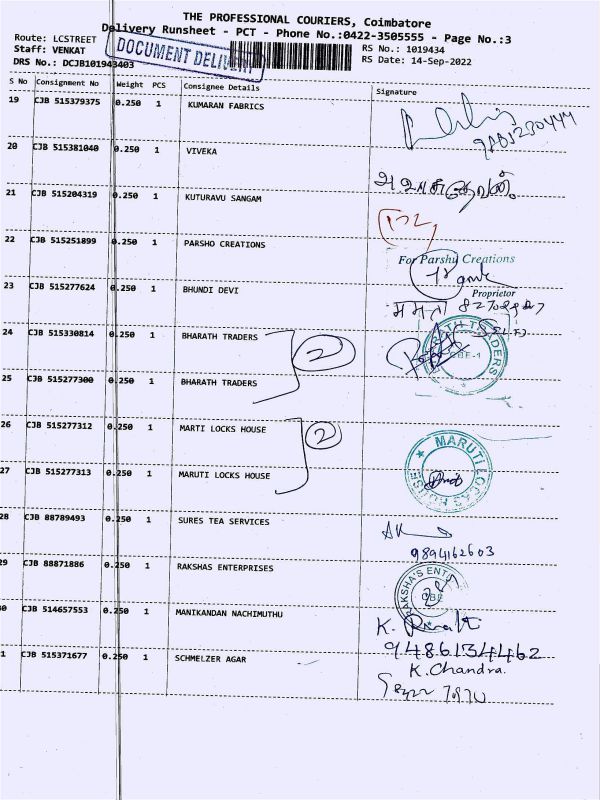 THE PROFESSIONAL COURIERS, Coimbatore
Delivery Runsheet - PCT - Phone No.:0422-3505555 - Page No.:3
Route: LCSTREET
Staff: VENKAT
DRS No.: DCJB101943403
DOCUMENT DELIVERY
RS No.: 1019434
RS Date: 14-Sep-2022
S No Consignment No Weight PCS Consignee Details Signature
19 CJB 515379375 0.250 1 KUMARAN FABRICS
20 CJB 515381040 0.250 1 VIVEKA
21 CJB 515204319 0.250 1 KUTURAVU SANGAM
22 CJB 515251899 0.250 1 PARSHO CREATIONS
For Parshv Creations
Proprietor
23 CJB 515277624 0.250 1 BHUNDI DEVI
ममता
24 CJB 515330814 0.250 1 BHARATH TRADERS
2
25 CJB 515277300 0.250 1 BHARATH TRADERS
26 CJB 515277312 0.250 1 MARTI LOCKS HOUSE
2
MARUTI LOCKS HOUSE
27 CJB 515277313 0.250 1 MARUTI LOCKS HOUSE
28 CJB 88789493 0.250 1 SURES TEA SERVICES
9894162603
29 CJB 88871886 0.250 1 RAKSHAS ENTERPRISES
RAKSHA'S ENT
CBE
0 CJB 514657553 0.250 1 MANIKANDAN NACHIMUTHU
K.
9486134462
1 CJB 515371677 0.250 1 SCHMELZER AGAR
K.Chandra.